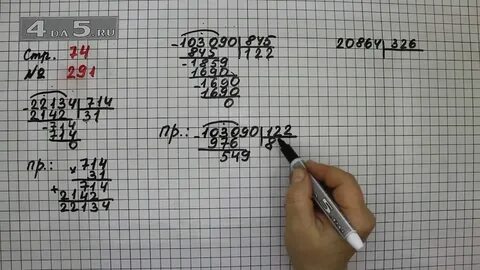 4DA5.RU
Стр. 74
№ 291
22134 | 714
2142 | 31
- 714
714
0
пр.: 714
× 31
714
+ 2142
22134
- 103090 | 845
845 | 122
- 1859
1690
- 1690
1690
0
пр.: - 103090 | 122
976 | 8
549
20864 | 326